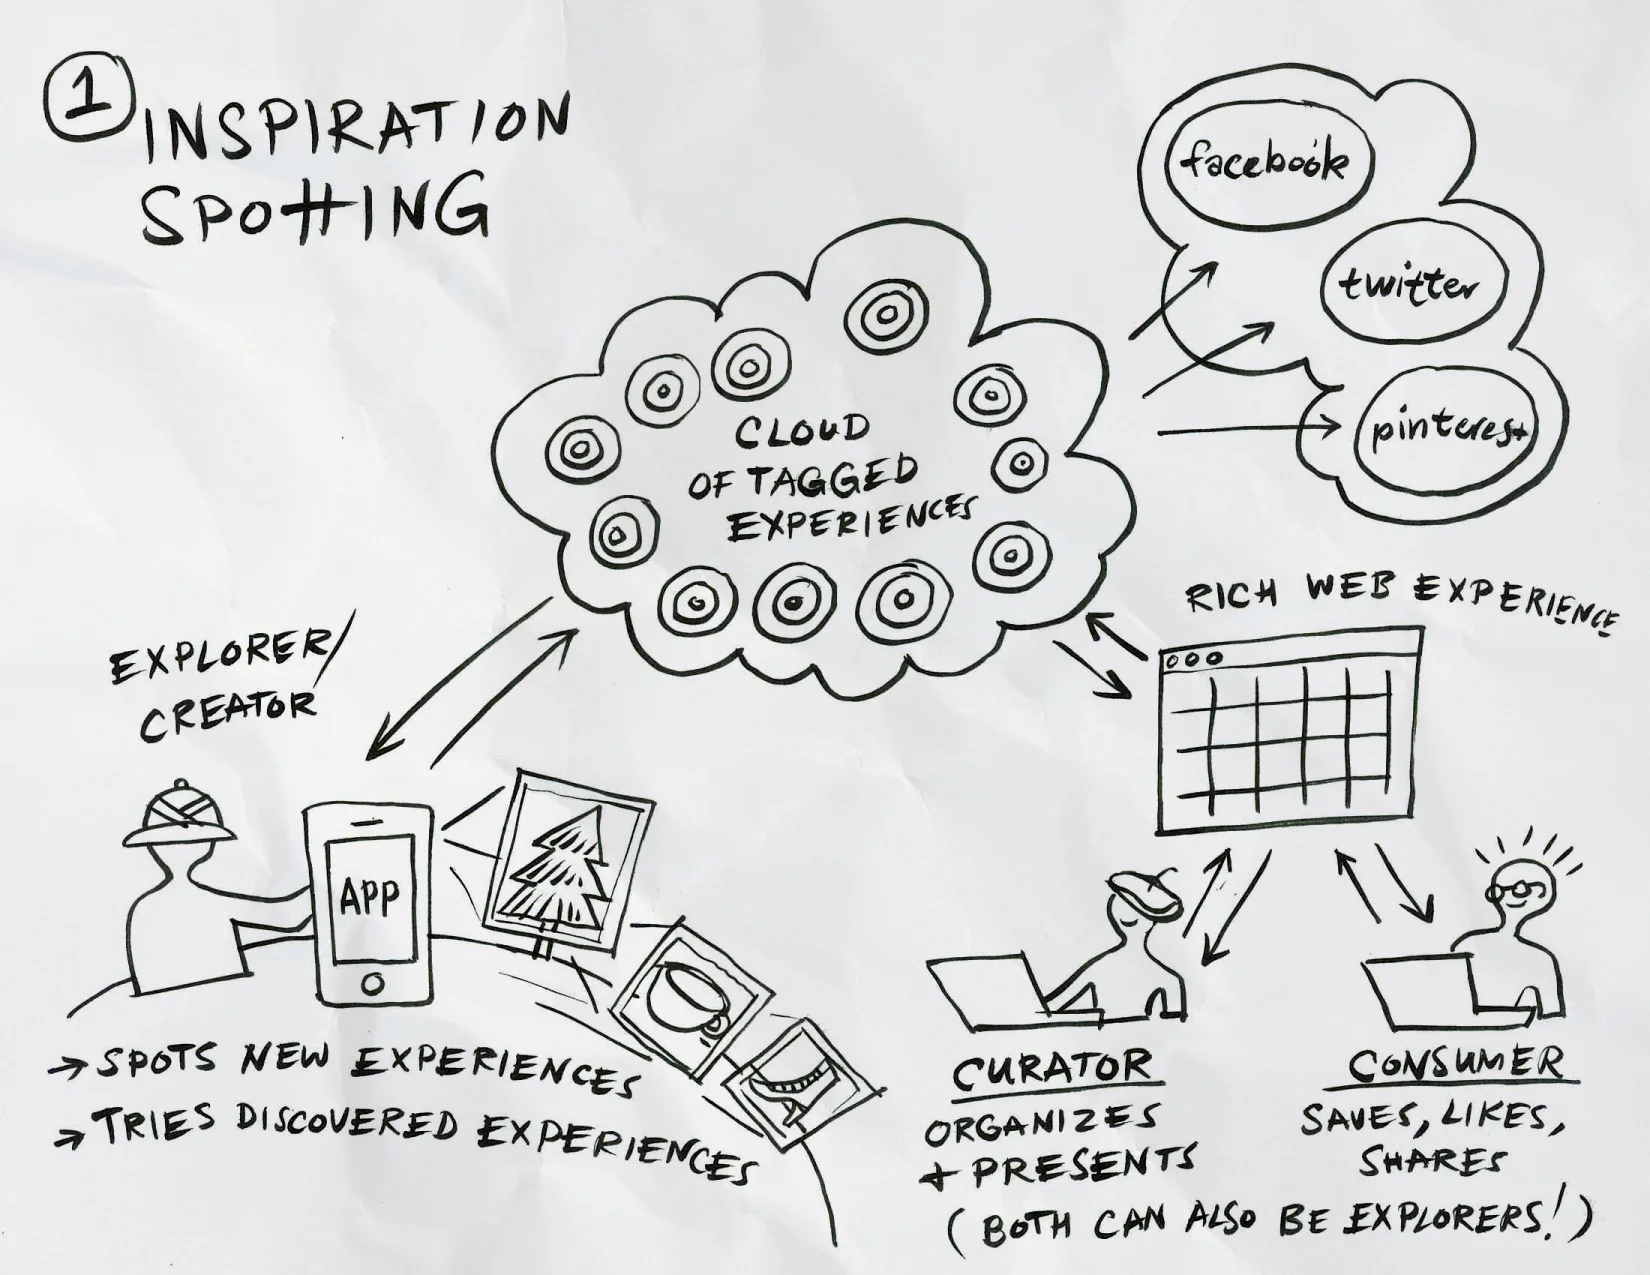 1
INSPIRATION
SPOTTING
facebook
twitter
pinterest
CLOUD
OF TAGGED
EXPERIENCES
RICH WEB EXPERIENCE
EXPLORER/
CREATOR
APP
→ SPOTS NEW EXPERIENCES
→ TRIES DISCOVERED EXPERIENCES
CURATOR
ORGANIZES
+ PRESENTS
CONSUMER
SAVES, LIKES,
SHARES
(BOTH CAN ALSO BE EXPLORERS!)